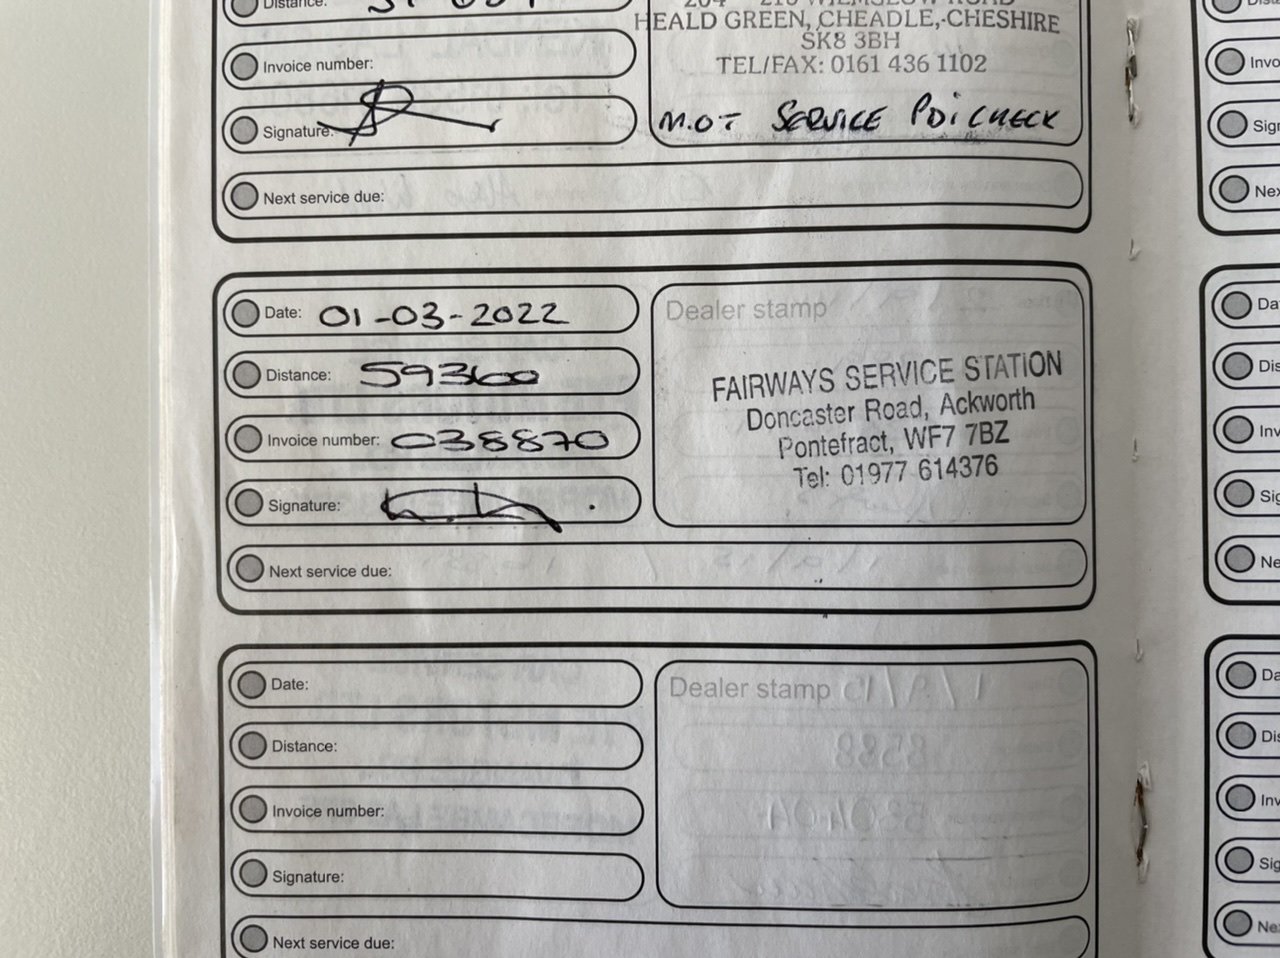 Distance:
HEALD GREEN, CHEADLE, CHESHIRE
SK8 3BH
TEL/FAX: 0161 436 1102
Invoice number:
Signature:
M.OT SERVICE PDi CHECK
Next service due:
Date: 01-03-2022
Distance: 59360
Invoice number: 038870
Signature:
Next service due:
Dealer stamp
FAIRWAYS SERVICE STATION
Doncaster Road, Ackworth
Pontefract, WF7 7BZ
Tel: 01977 614376
Date:
Distance:
Invoice number:
Signature:
Next service due:
Dealer stamp